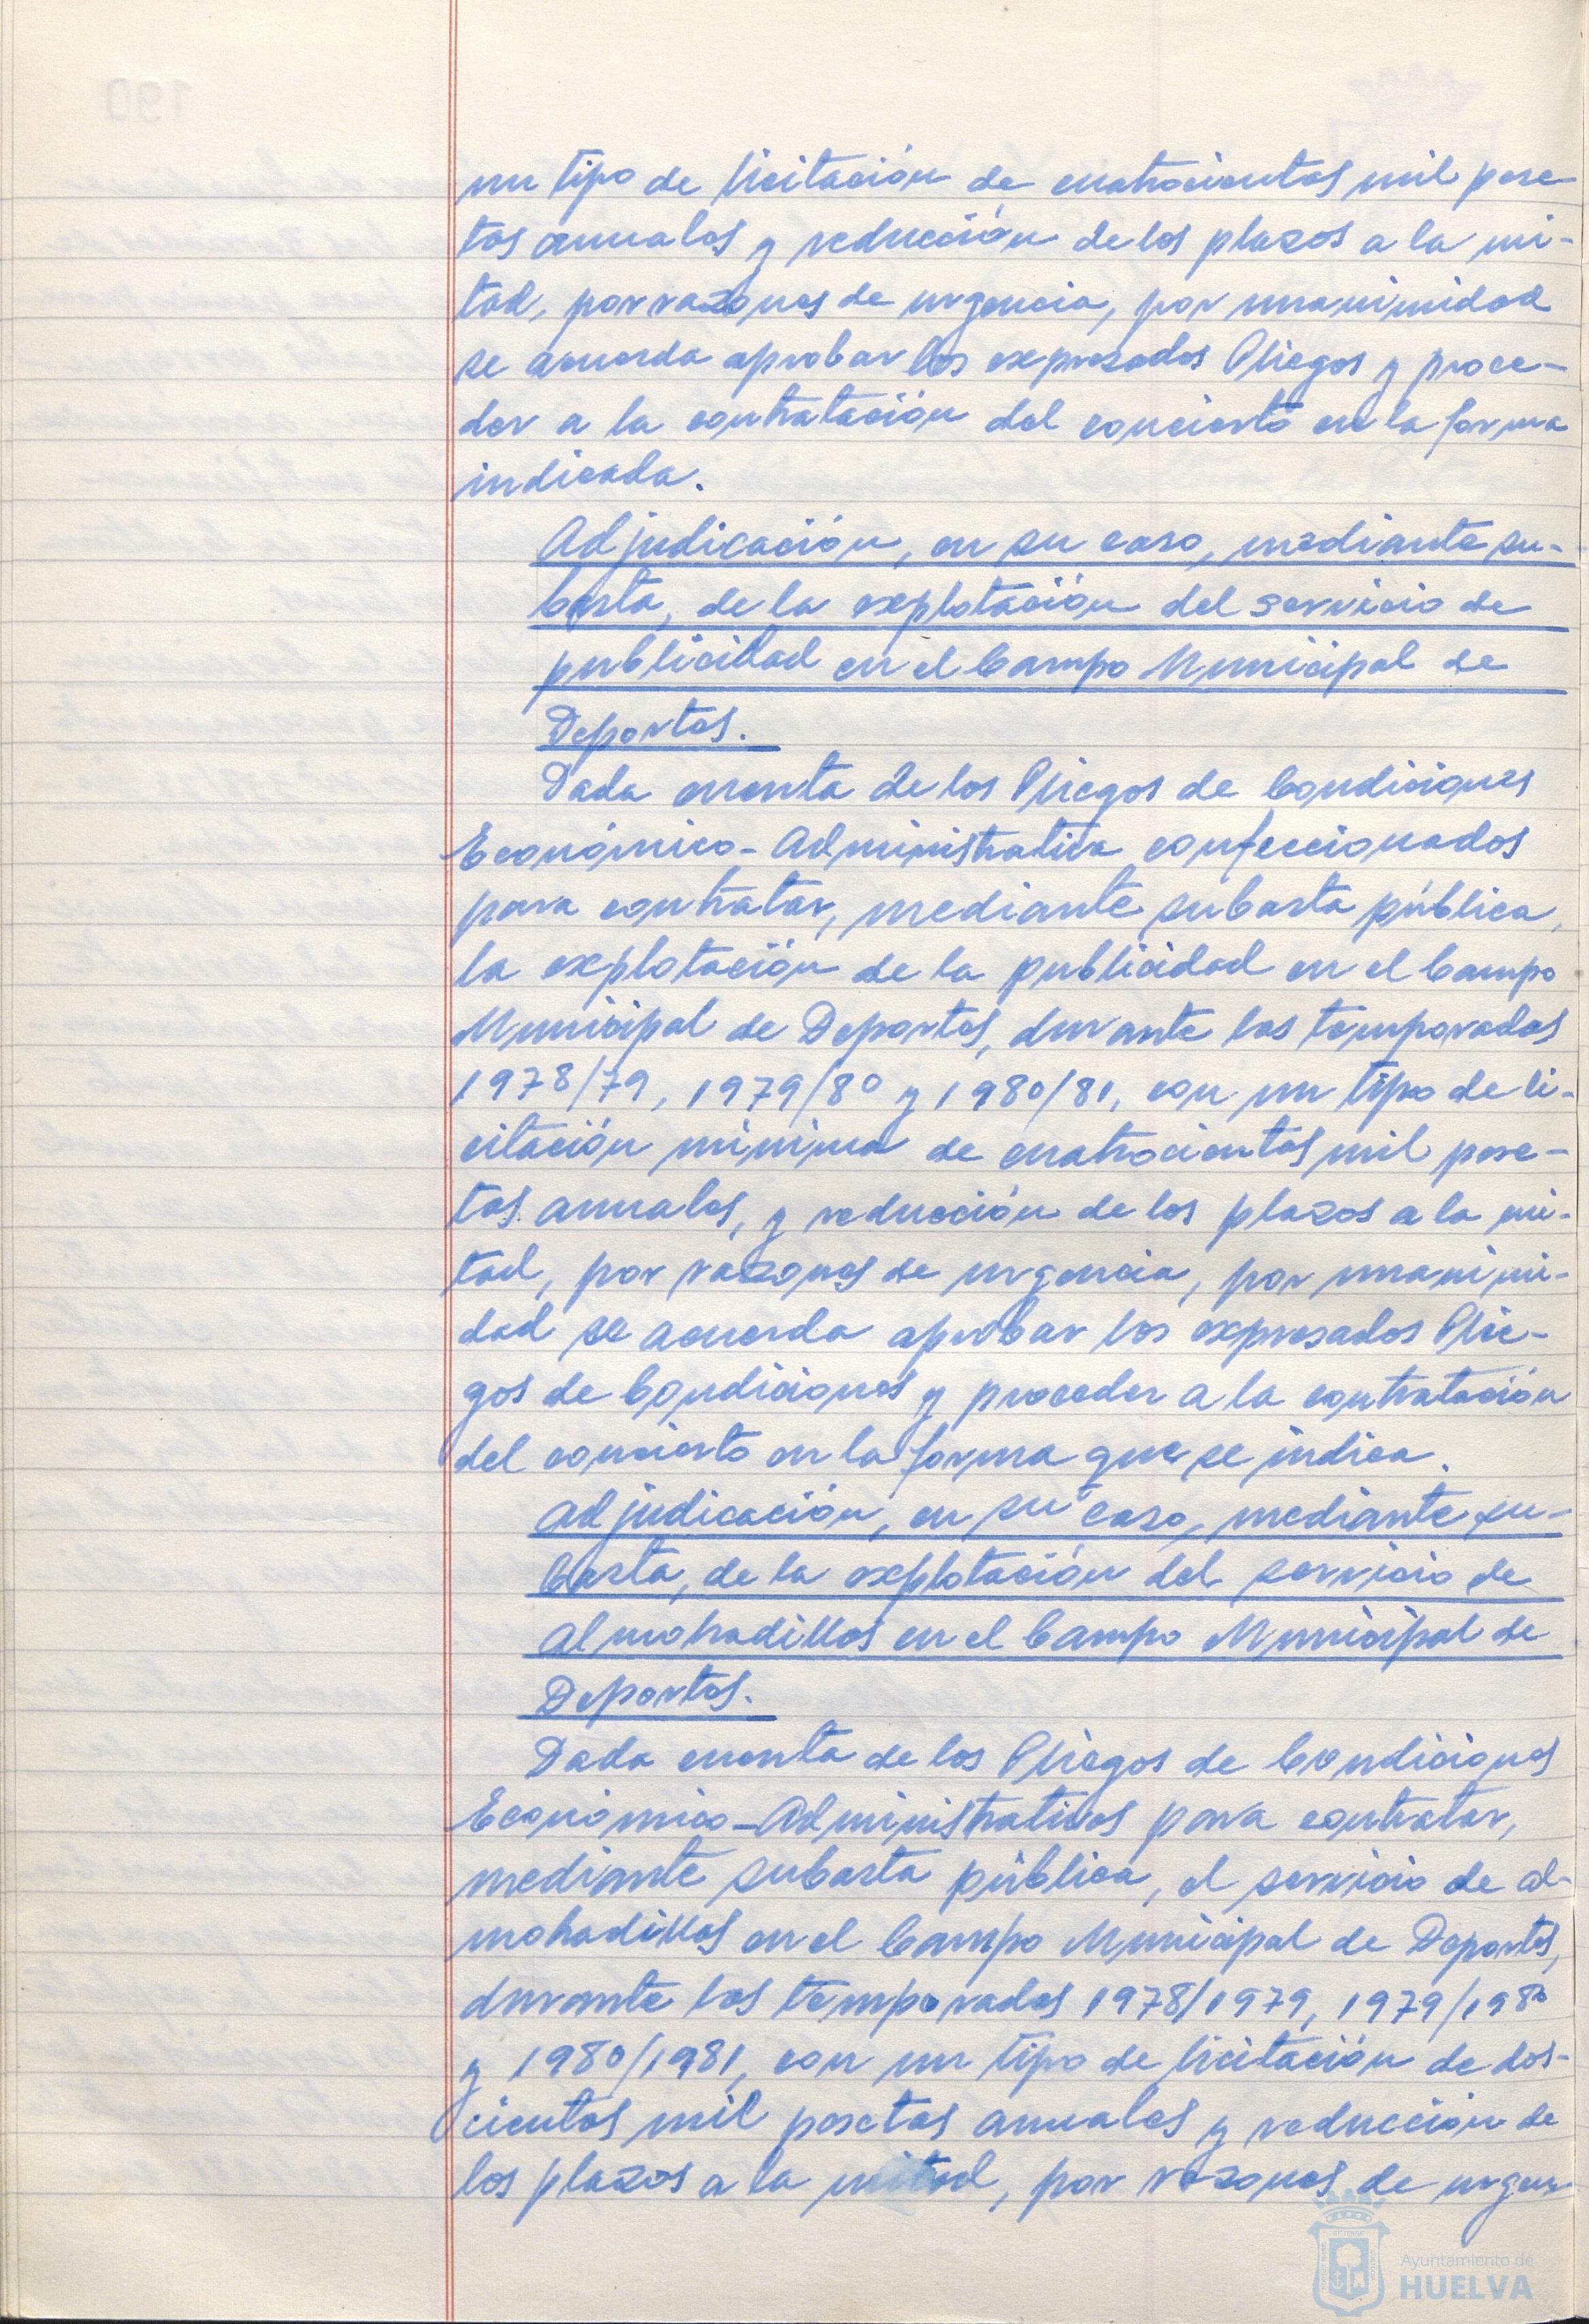 un tipo de licitación de cuatrocientas mil pese-
tas anuales y reducción de los plazos a la mi-
tad, por razones de urgencia, por unanimidad
se acuerda aprobar los expresados Pliegos y proce-
der a la contratación del concierto en la forma
indicada.
Adjudicación, en su caso, mediante su-
basta, de la explotación del servicio de
publicidad en el Campo Municipal de
Deportes.
Dada cuenta de los Pliegos de Condiciones
Económico-Administrativa confeccionados
para contratar, mediante subasta pública,
la explotación de la publicidad en el Campo
Municipal de Deportes, durante las temporadas
1978/79, 1979/80 y 1980/81, con un tipo de li-
citación mínima de cuatrocientas mil pese-
tas anuales, y reducción de los plazos a la mi-
tad, por razones de urgencia, por unanimi-
dad se acuerda aprobar los expresados Plie-
gos de Condiciones y proceder a la contratación
del concierto en la forma que se indica.
Adjudicación, en su caso, mediante su-
basta, de la explotación del servicio de
almohadillas en el Campo Municipal de
Deportes.
Dada cuenta de los Pliegos de Condiciones
Económico-Administrativos para contratar,
mediante subasta pública, el servicio de al-
mohadillas en el Campo Municipal de Deportes,
durante las temporadas 1978/1979, 1979/1980
y 1980/1981, con un tipo de licitación de dos-
cientas mil pesetas anuales y reducción de
los plazos a la mitad, por razones de urgen-
Ayuntamiento de
HUELVA
190